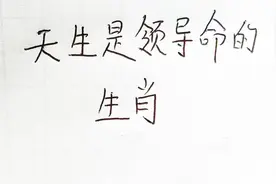 天生是领导命的
生肖